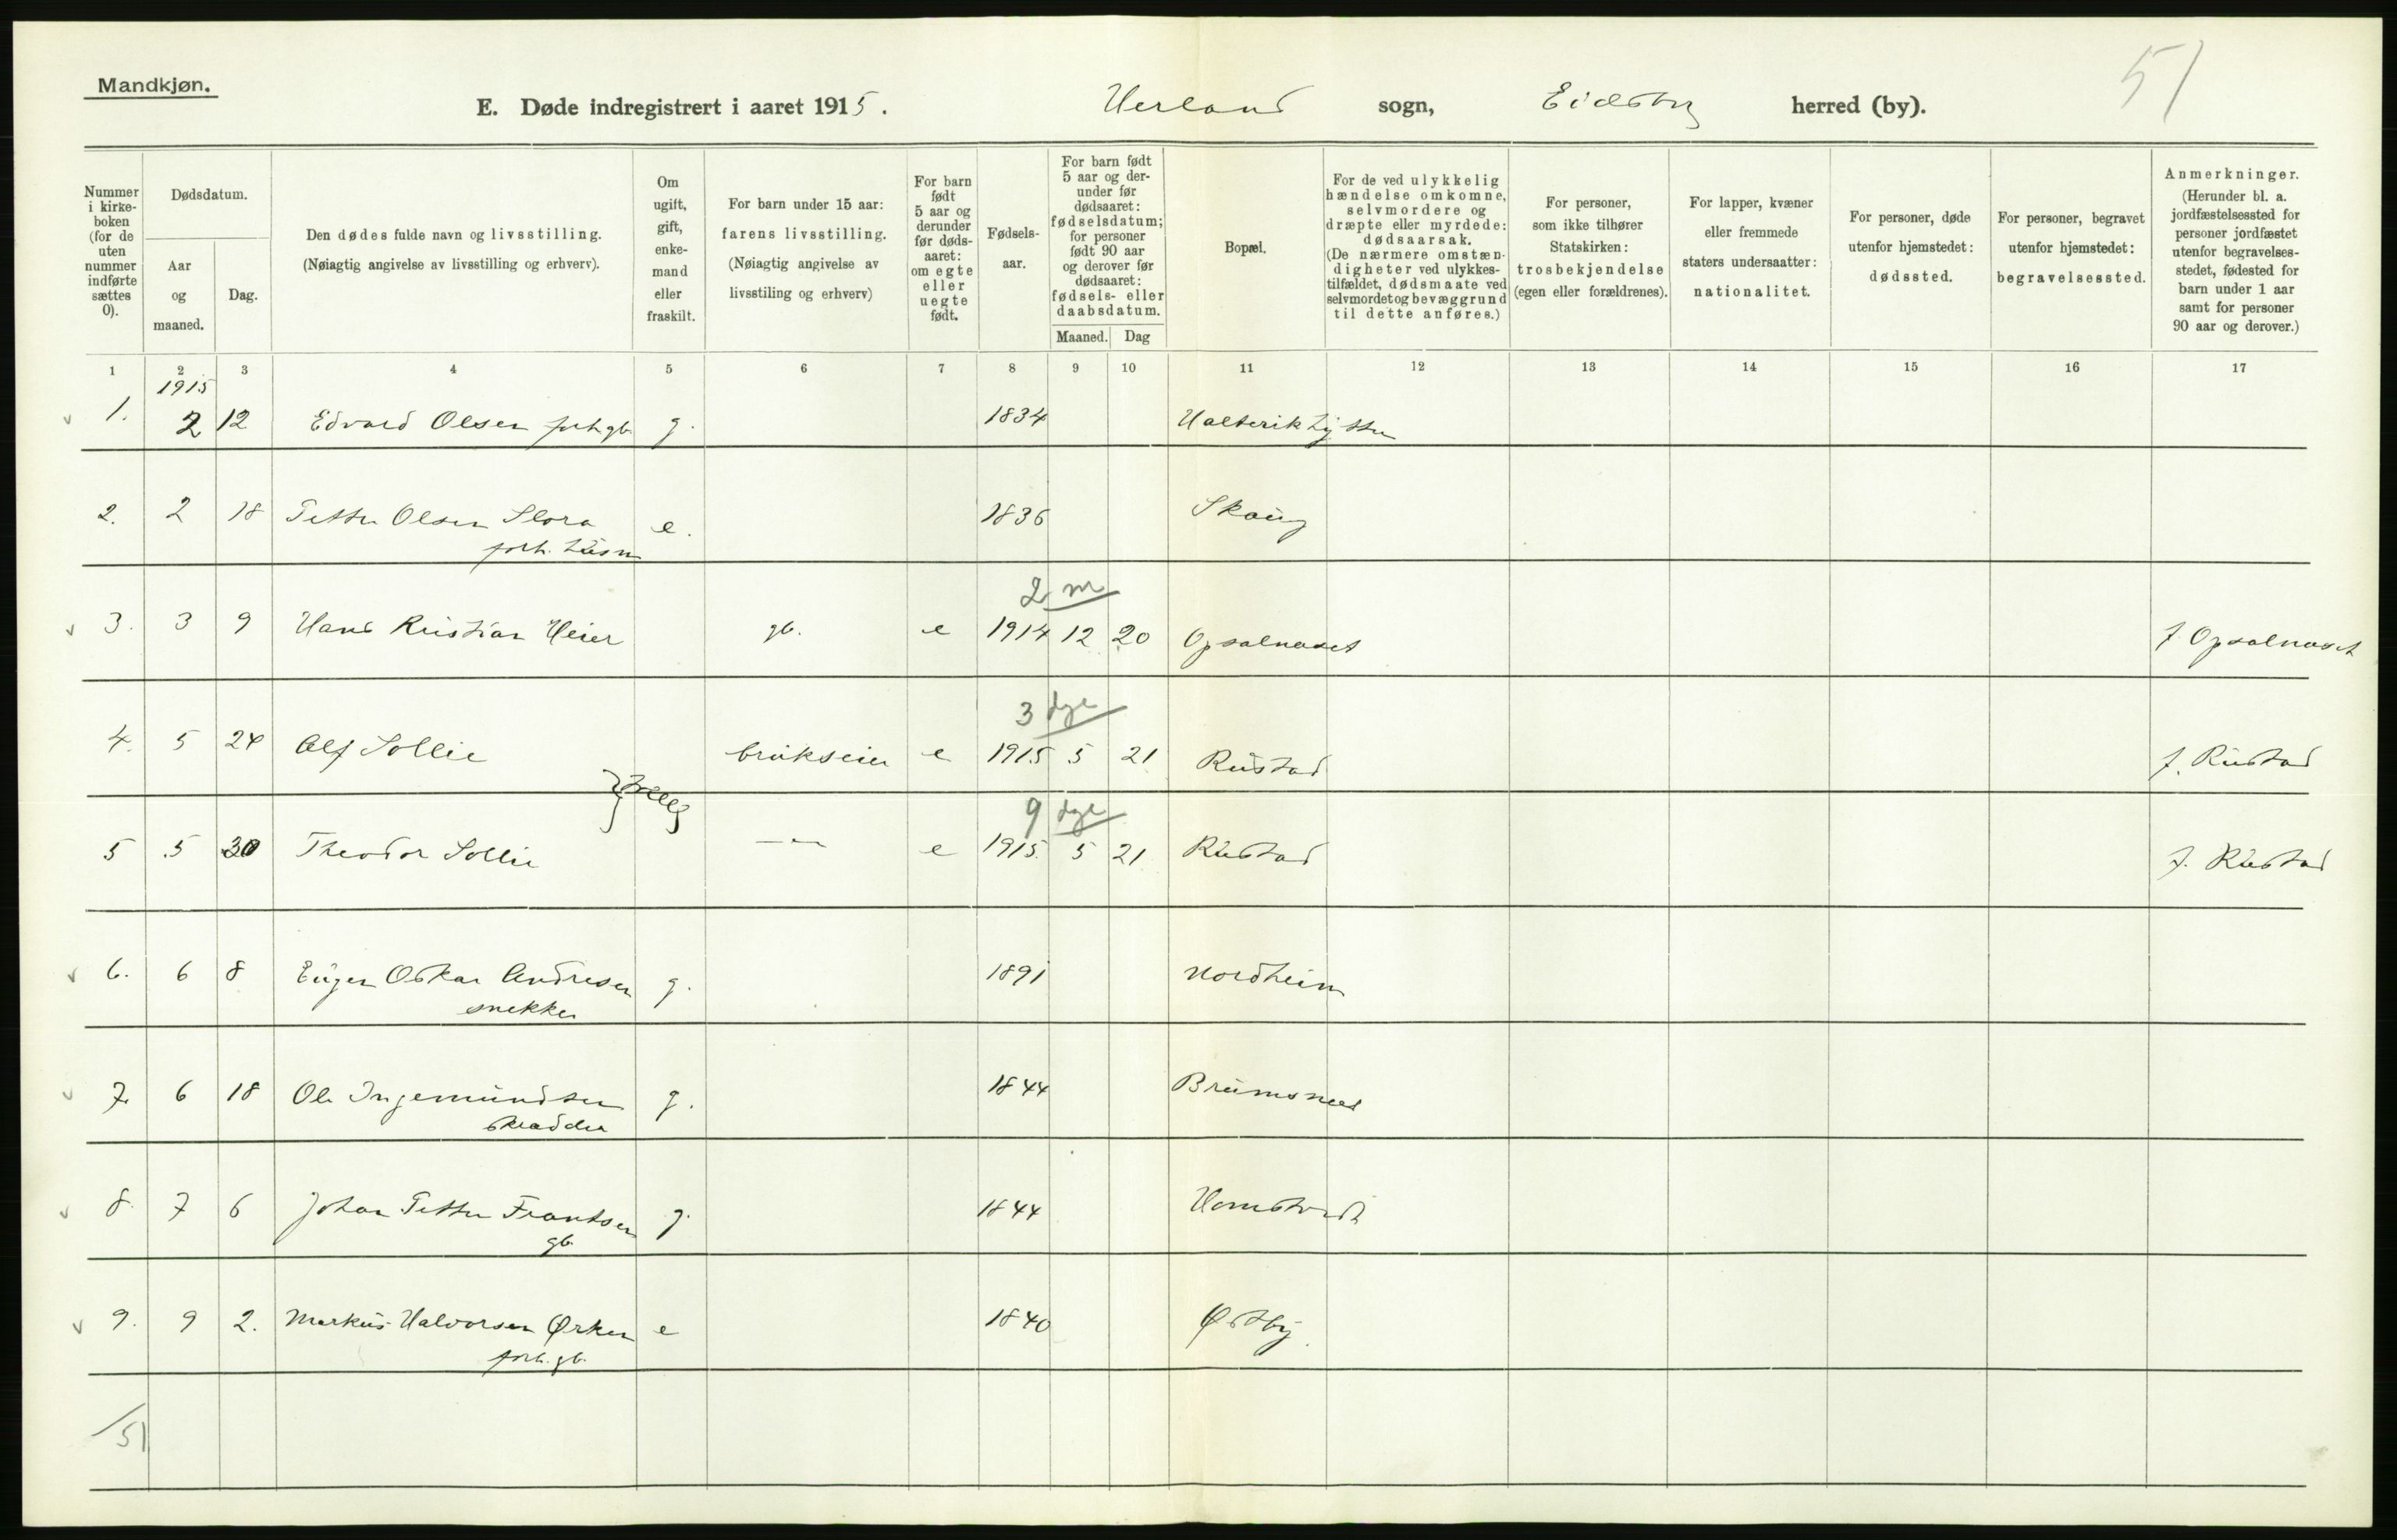 51
Mandkjøn.
E. Døde indregistrert i aaret 1915. Herland sogn, Eidsberg herred (by).
Nummer i kirke-boken (for de uten nummer indførte sættes 0).
Dødsdatum.
Aar og maaned.
Dag.
Den dødes fulde navn og livsstilling.
(Nøiagtig angivelse av livsstilling og erhverv).
Om ugift, gift, enke-mand eller fraskilt.
For barn under 15 aar:
farens livsstilling.
(Nøiagtig angivelse av
livsstiling og erhverv)
For barn født 5 aar og derunder før døds-aaret: om egte eller uegte født.
Fødsels-aar.
For barn født 5 aar og der-under før dødsaaret: fødselsdatum; for personer født 90 aar og derover før dødsaaret: fødsels- eller daabsdatum.
Maaned. Dag
Bopæl.
For de ved ulykkelig hændelse omkomne, selvmordere og dræpte eller myrdede: dødsaarsak. (De nærmere omstæn-digheter ved ulykkes-tilfældet, dødsmaate ved selvmordet og bevæggrund til dette anføres.)
For personer, som ikke tilhører Statskirken: trosbekjendelse (egen eller forældrenes).
For lapper, kvæner eller fremmede staters undersaatter: nationalitet.
For personer, døde utenfor hjemstedet: dødssted.
For personer, begravet utenfor hjemstedet: begravelsessted.
Anmerkninger.
(Herunder bl. a. jordfæstelsessted for personer jordfæstet utenfor begravelses-stedet, fødested for barn under 1 aar samt for personer 90 aar og derover.)
1 2 3 4 5 6 7 8 9 10 11 12 13 14 15 16 17
1915
1. 2 12 Edvard Olsen forh.gb. g. 1834
2. 2 18 Petter Olsen Slora e. 1836 Skaug
forh. husm
2 m
3. 3 9 Hans Kristian Heier gb. e 1914 12 20 Opsalnaset f Opsalnaset
3 dge
4. 5 24 Alf Sollie brukseier e 1915 5 21 Rustad f. Rustad
} Tvillg
9 dge
5 5 30 Theodor Sollie — " — e 1915. 5 21. Rustad f. Rustad
6. 6 8 Eugen Oskar Andresen g. 1891 Nordheim
snekker
7. 6 18 Ole Ingemundsen g. 1844 Brumsnes
skrædder
8. 7 6 Johan Petter Frantsen g. 1844 Homstvedt
gb.
9. 9 2. Markus Halvorsen Ørken e 1840 Østby.
forh. gb.
/51